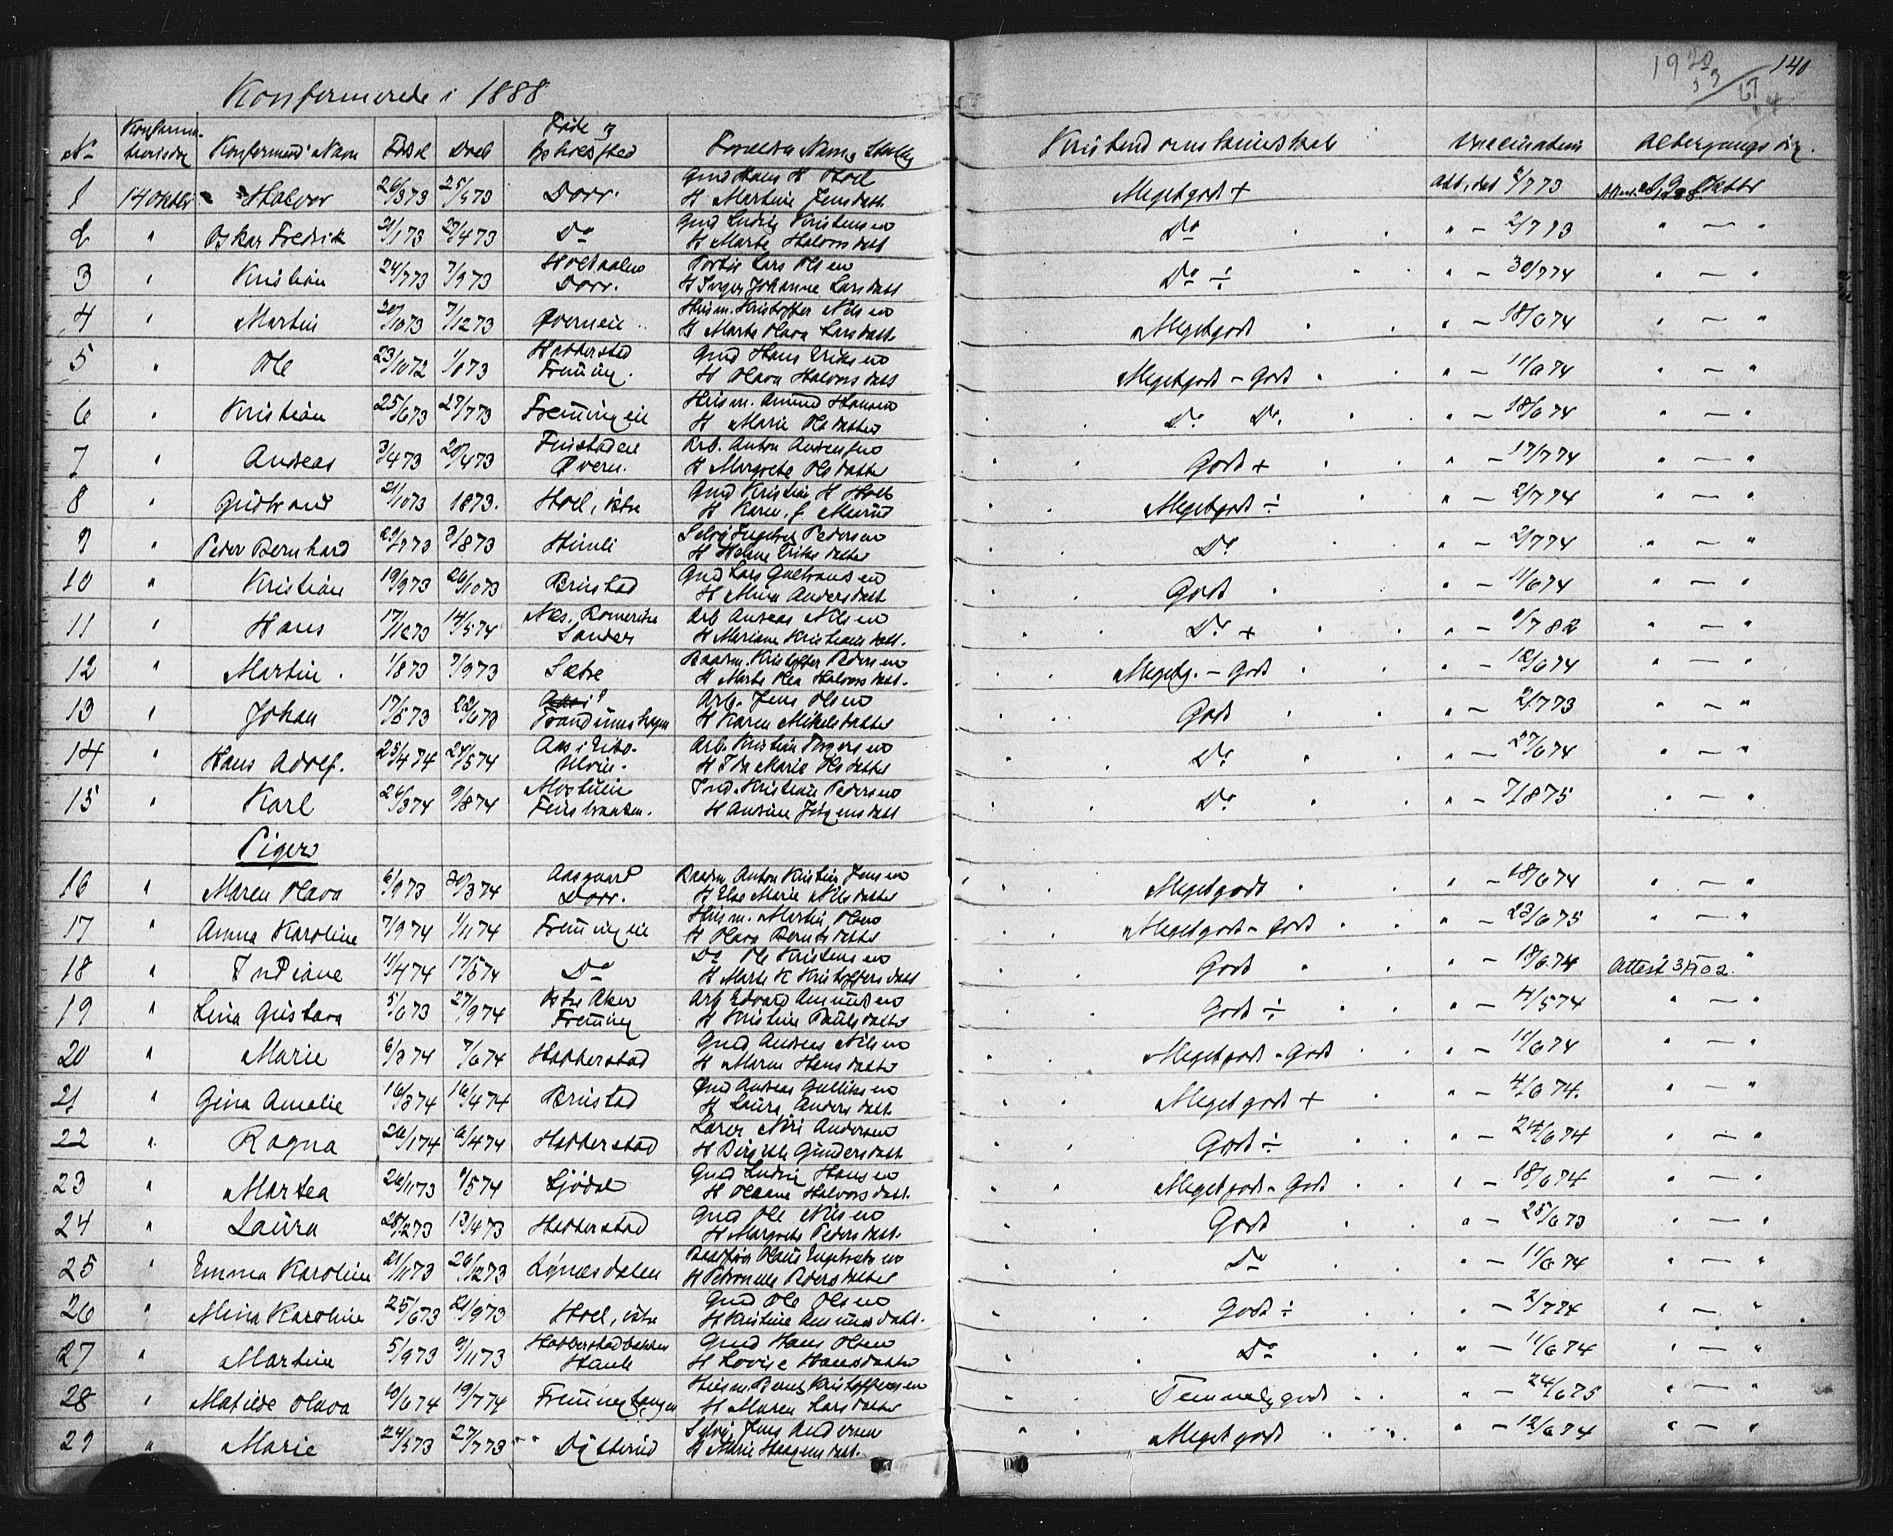 140
Konfirmerede i 1888
No Konfirma-tionsdag Konfirmand Navn Født Døbt Føde og Opholdssted Foreldres Navn og Stilling Kristendomskundskab Vaccination Altergangsdag.
1 14 Oktbr Halvor 26/3 73 25/5 73 Dorr. Gmd Hans H Hoel H Martine Jensdatt Megetgodt + att. dat 2/7 73 Oktbr
2 " Oskar Fredrik 21/1 73 27/4 73 Do Gmd Ludvig Kristensen H Marte Halvorsdatt Do " — 2/7 73 " — "
3 " Kristian 24/7 73 7/9 73 Dorr. Lars Olsen H Inger Johanne Larsdatt Do ÷ " — 30/7 74 " — "
4 " Martin 20/10 73 7/12 73 Qverneie Husm. Kristoffer Nilsen H Marte Olava Larsdatt. Megetgodt " — 18/6 74 " — "
5 " Ole 23/10 72 1/6 73 Habberstad Frenning. Gmd Hans Eriksen H Olava Halvorsdatt Megetgodt - Godt " — 11/6 74 " — "
6 " Kristian 25/6 73 27/7 73 Frenning eie Husm. Amund Hansen H Marie Olsdatter Do Do. " — 18/6 74 " — "
7 " Andreas 3/4 73 20/4 73 Finstadeie Qvern. Arb. Anton Andersen H Margrete Olsdatter Godt + " — 17/7 74 " — "
8 " Gudbrand 21/10 73 1873. Hoel, østre Gmd Kristian H Hoel H Karen f. Mørud Megetgodt ÷ " — 2/7 74 " — "
9 " Peder Bernhard 29/7 73 3/8 73 Himli Selvei Engebret Pedersen H Helene Eriksdatter Do " — 2/7 74 " — "
10 " Kristian 19/9 73 26/10 73 Brustad Gmd Lars Gulbrandsen H Mina Andersdatt Godt " — 11/6 74 " — "
11 " Hans 17/12 73 14/5 74 Næs, Romerike Sander Arb Andreas Nilsen H Mariane Kristiansdatt. Do + " — 82 " — "
12 " Martin. 1/8 73 7/9 73 Sætre Baadm. Kristoffer Pedersen H Marte Olea Halvorsdatt. Megetg. — Godt " — 12/6 74 " — "
13 " Johan 17/5 73 22/6 73 Trandumskogen Arb. Jens Olsen H Karen Mikelsdatter Godt " — 2/7 73 " — "
14 " Hans Adolf. 25/4 74 24/5 74 Aas i Eidsvold Arb. Kristian Torgersen H Ida Marie Olsdatter Do " — 27/6 74 " — "
15 " Karl 26/3 74 9/8 74 Mostuen Finsbraaten. Ind. Kristian Pedersen H Andrine Jørgensdatt Do " — 7/8 75 " — "
Piger
16 " Maren Olava 6/9 73 20/3 74 Aasgaard Dorr. Baadm Anton Kristian Jensen H Else Marie Nilsdatter Megetgodt " — 18/6 74 " — "
17 " Anna Karoline 7/9 74 1/11 74 Frenning eie Husm. Martin Olsen H Olava Berntsdatter Megetgodt - Godt " — 23/6 75 " — "
18 " Indiane 11/4 74 17/5 74 Do Do Ole Kristensen H Marte K Kristoffersdatt Godt " — 18/6 74 Attest 3/1 02.
19 " Lina Gustava 5/6 73 27/9 74 Østre Aker Frenning Arb Edvard Amundsen H Kristine Paulsdatter Godt ÷ " — 4/5 74 " — "
20 " Marie 6/3 74 7/6 74 Habberstad Gmd Andreas Nilsen H Maren Hansdatter Megetgodt - Godt " — 11/6 74 " — "
21 " Gina Amalie 16/3 74 16/4 74 Brustad Gmd Andreas Gulliksen H Laura Andersdatt Megetgodt + " — 4/6 74. " — "
22 " Ragna 26/1 74 6/4 74 Habberstad Lærer Andersen H Birgitte Gundersdatt Godt ÷ " — 24/6 74 " — "
23 " Martea 26/11 73 74 Ljødal Gmd Ludvig Hansen H Oleane Halvorsdatt. Megetgodt - Godt " — 18/6 74 " — "
24 " Laura 28/2 73 13/4 73 Habberstad Gmd Ole Nilsen H Margrete Pedersdatt. Godt " — 25/6 73 " — "
25 " Emma Karoline 21/11 73 26/12 73 Lynæsdalen Olaus Engebretsen H Petronelle Pedersdatter Do " — 11/6 74 " — "
26 " Mina Karoline 25/6 73 21/9 73 Hoel, østre Gmd Ole Olsen H Kristine Amundsdatt. Godt ÷ " — 2/7 74 " — "
27 " Martine 5/9 73 9/11 73 Habberstadbakken Gmd Hans Olsen H Lovise Hansdatter Do " — 11/6 74 " — "
28 " Matilde Olava 10/6 74 19/7 74 Frenninghaugen Husm Bernt Kristoffersen H Maren Larsdatter Temmelig godt " — 24/6 75 " — "
29 " Marie 24/5 73 27/7 73 Dytterud Selvei. Jens Andersen H Marie Haagensdatt. Megetgodt " — 12/6 74 " — "